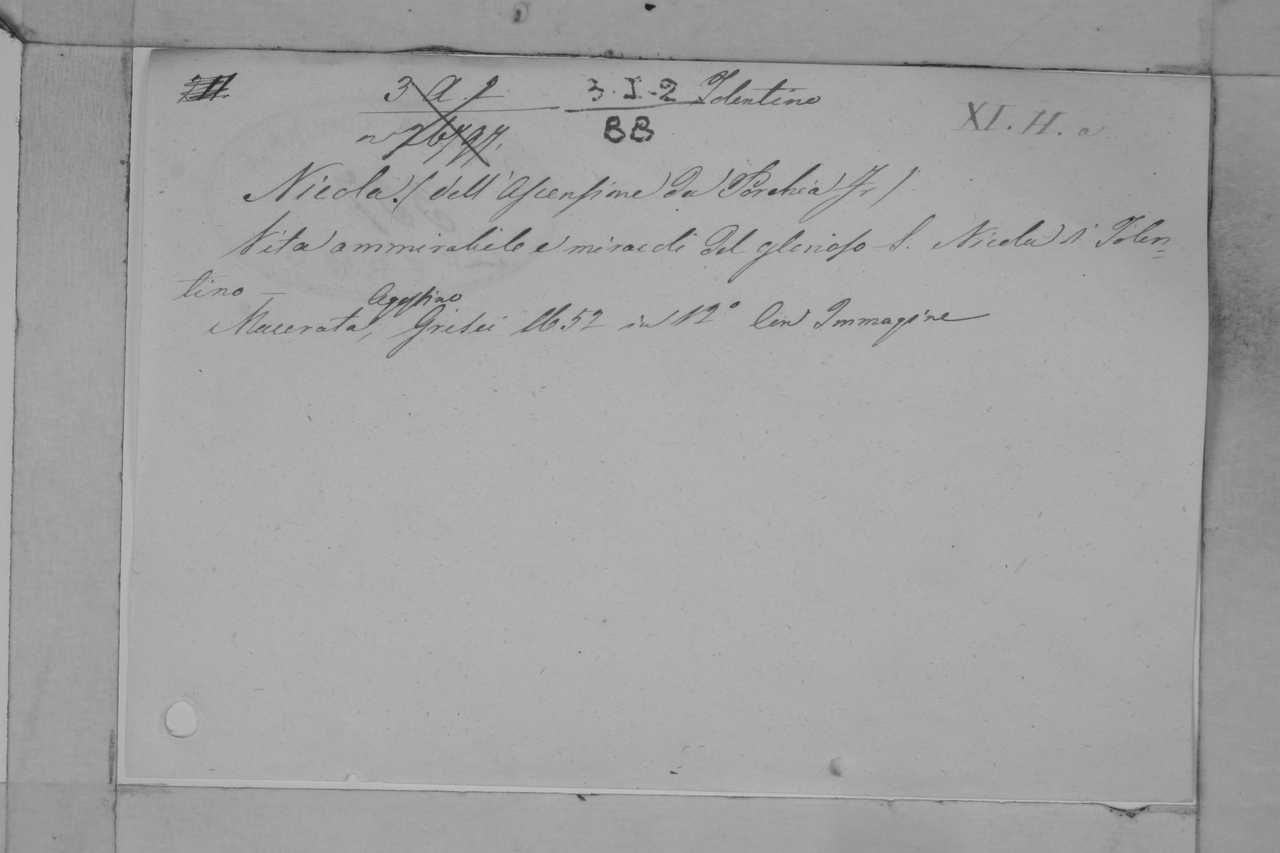 3 a 2 3. I.-2 Tolentino XI. H. a
88
Nicola (dell' Ascensione da Fr)
Vita ammirabile e miracoli del glorioso S. Nicola di Tolen=
tino —
Agostino
Macerata, Grisei 1652 in 12° Con Immagine